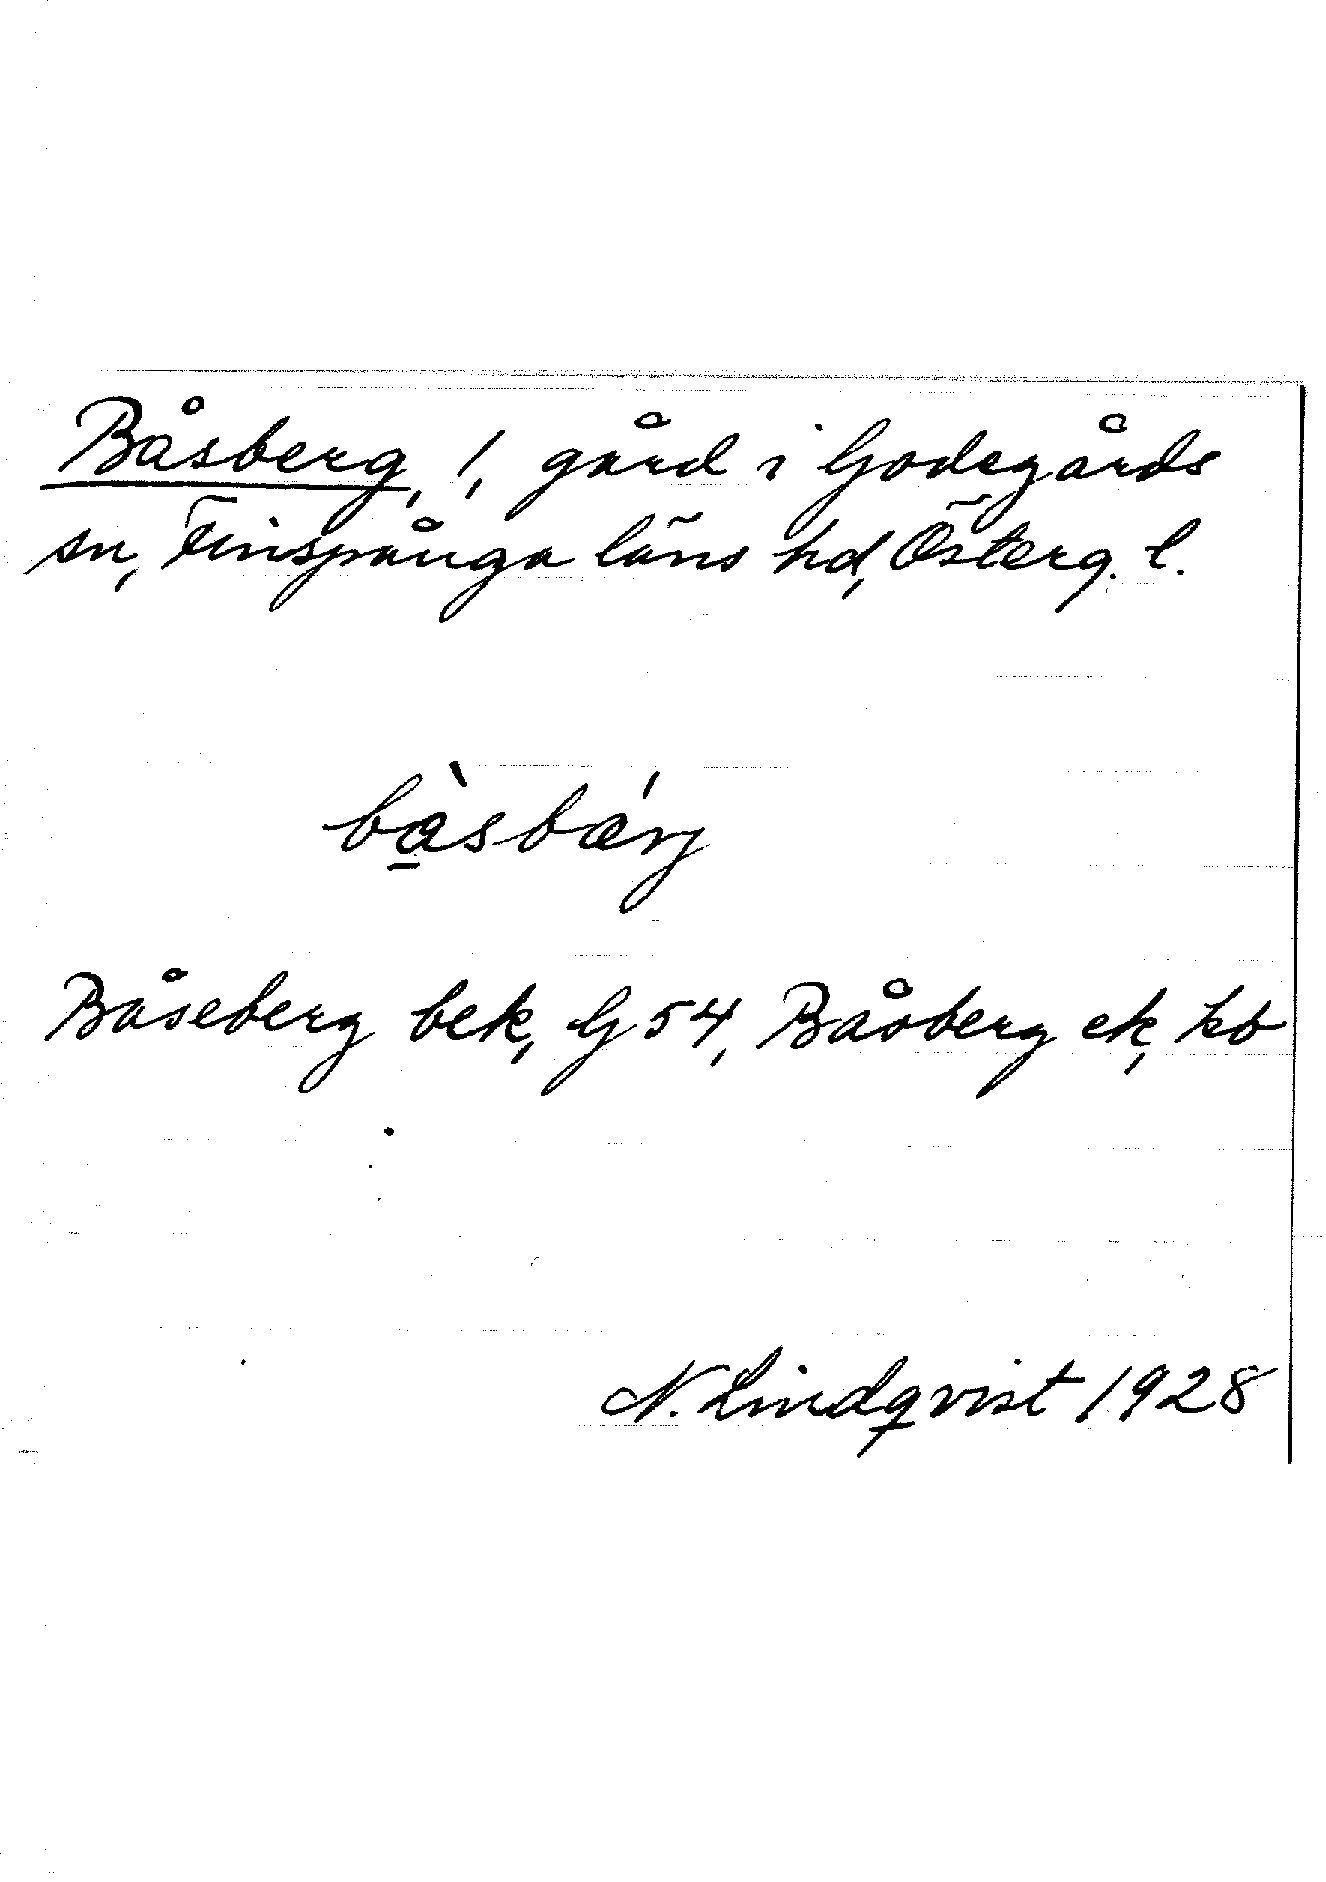 Båsberg, 1, gård i Godegårds
sn, Finspånga läns hd, Österg. l.
bàsbǽrj
Båseberg bek, G 54, Båsberg ek, kb
N. Lindqvist 1928